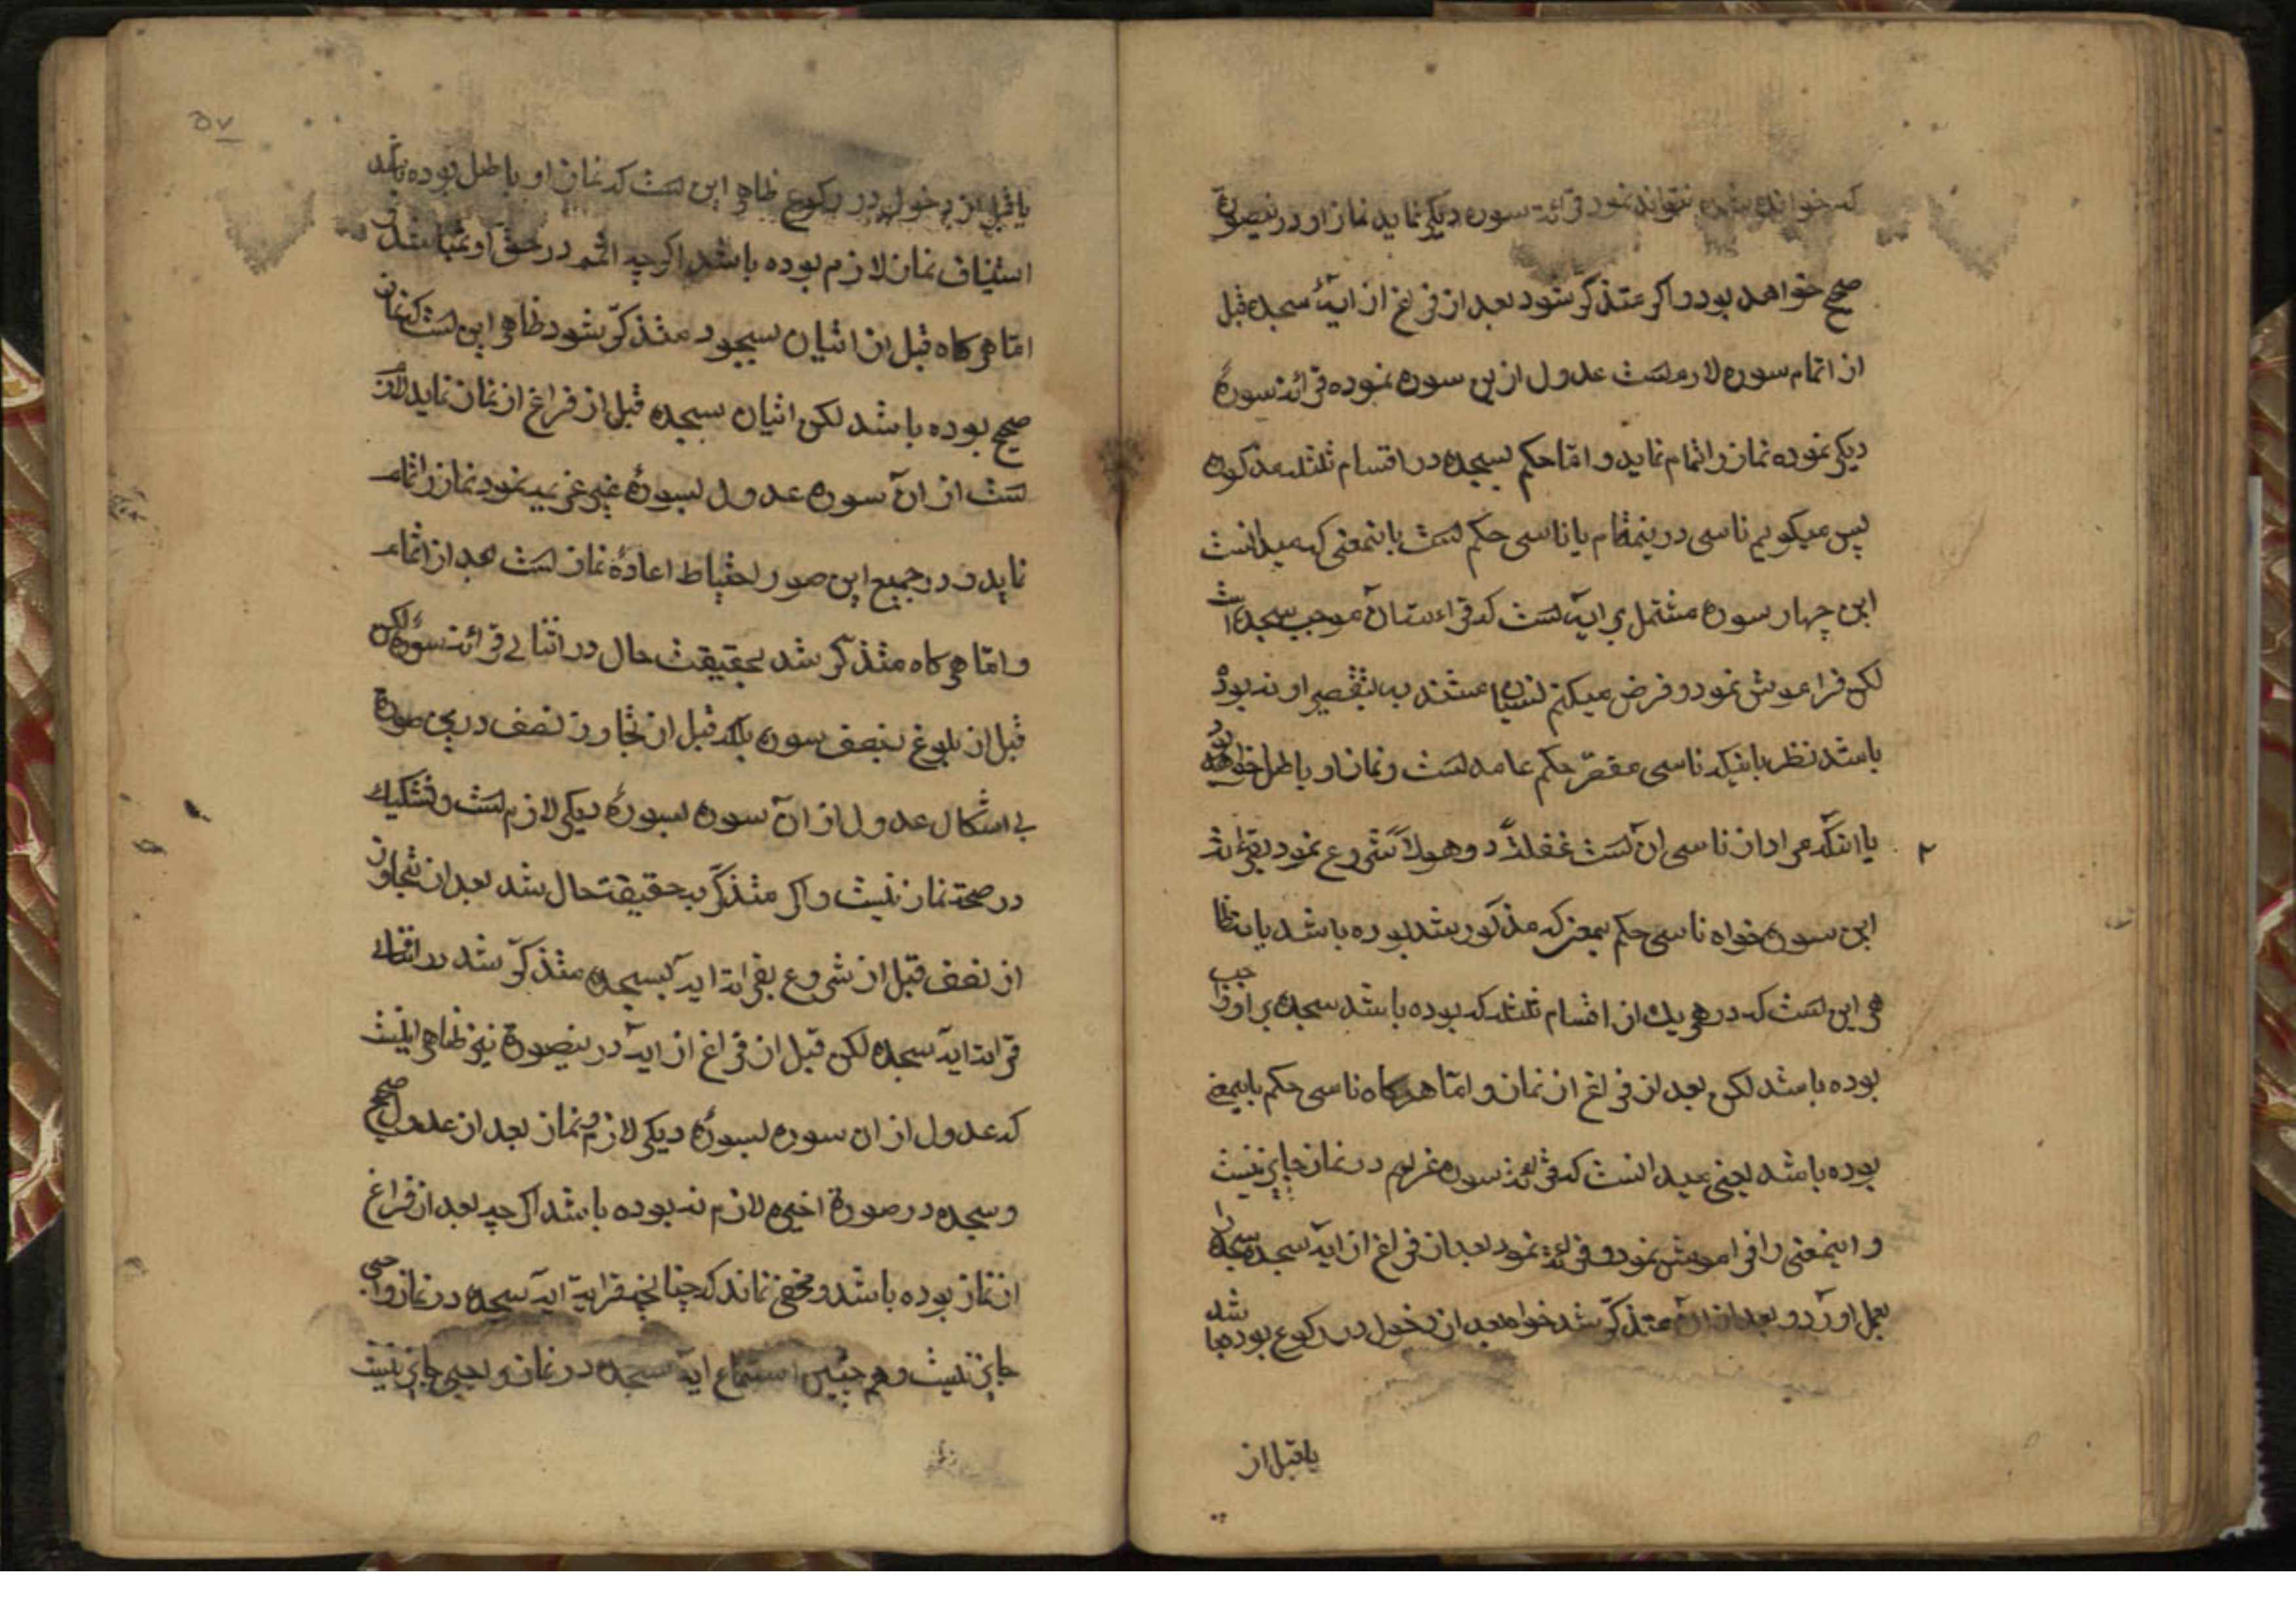 که خوانده شده نتواند نمود قرائت سوره دیکر نماید نماز او درینصورة
صحیح خواهد بود و اکر متذکر شود بعد از فراغ از ایهٔ سجده قبل
از اتمام سوره لازمست عدول ازین سوره نموده قرائت سورهٔ
دیکر نموده نماز را تمام نماید و امّا حکم سجده در اقسام ثلثه مذکوره
پس میکویم ناسی درینمقام یا ناسی حکم است باینمعنی که میدانست
این چهار سوره مشتمل بر ایه است که قراءت آن موجب سجده است
لکن فراموش نمود و فرض میکنم نسیان مستند به تقصیر او نه بوده
باشد نظر باینکه ناسی مقصّر حکم عامد است و نماز او باطل خواهد بود
یا انکه مراد از ناسی آن است غفلةً و هولاً شروع نمود بقرائة
این سوره خواه ناسی حکم بمعنی که مذکور شد بوده باشد یا نه ظا
هر این است که در هر یک از اقسام ثلثه که بوده باشد سجده بر او واجب
بوده باشد لکن بعد از فراغ از نماز و امّا هرکاه ناسی حکم باینمعنی
بوده باشد یعنی میدانست که قرائة سوره عزایم در نماز جایز نیست
و اینمعنی را فراموش نمود و قرائة نمود بعد از فراغ از ایه سجده سجده را
بعمل اورد و بعد از آن متذکّر شد خواه بعد از دخول در رکوع بوده باشد
یا قبل از
۵۷
یا قبل از دخول در رکوع ظاهر این است که نماز او باطل بوده باشد
استیناف نماز لازم بوده باشد اکرچه اثم در حق او نمیباشد و
امّا هرکاه قبل از اتیان سجود متذکّر شود ظاهر این است که نماز
صحیح بوده باشد لکن اتیان سجده قبل از فراغ از نماز نماید لازم
است از آن سوره عدول بسورهٔ غیر عزیمه نمود نماز را تمام
نماید و در جمیع این صور احتیاط اعادهٔ نماز است بعد از اتمام
و امّا هرکاه متذکر شد بحقیقت حال در اثنای قرائت سوره لکن
قبل از بلوغ بنصف سوره بلکه قبل از تجاوز نصف درین صورة
بی اشکال عدول از آن سوره بسورهٔ دیکر لازم است و تشکیک
در صحة نماز نیست و اکر متذکّر بحقیقت حال شد بعد از تجاوز
از نصف قبل از شروع بقرائة ایه سجده متذکّر شد در اثنای
قرائة ایه سجده لکن قبل از فراغ از ایه درینصورة نیز ظاهر اینست
که عدول از ان سوره بسورهٔ دیکر لازم و نماز بعد از عدول صحیح
و سجده در صورة اخیره لازم نه بوده باشد اکر چه بعد از فراغ
از نماز بوده باشد و مخفی نماند که چنانچه قرایة ایه سجده در نماز واجبی
جایز نیست و هم چنین استماع ایه سجده در نماز واجبی جایز نیست